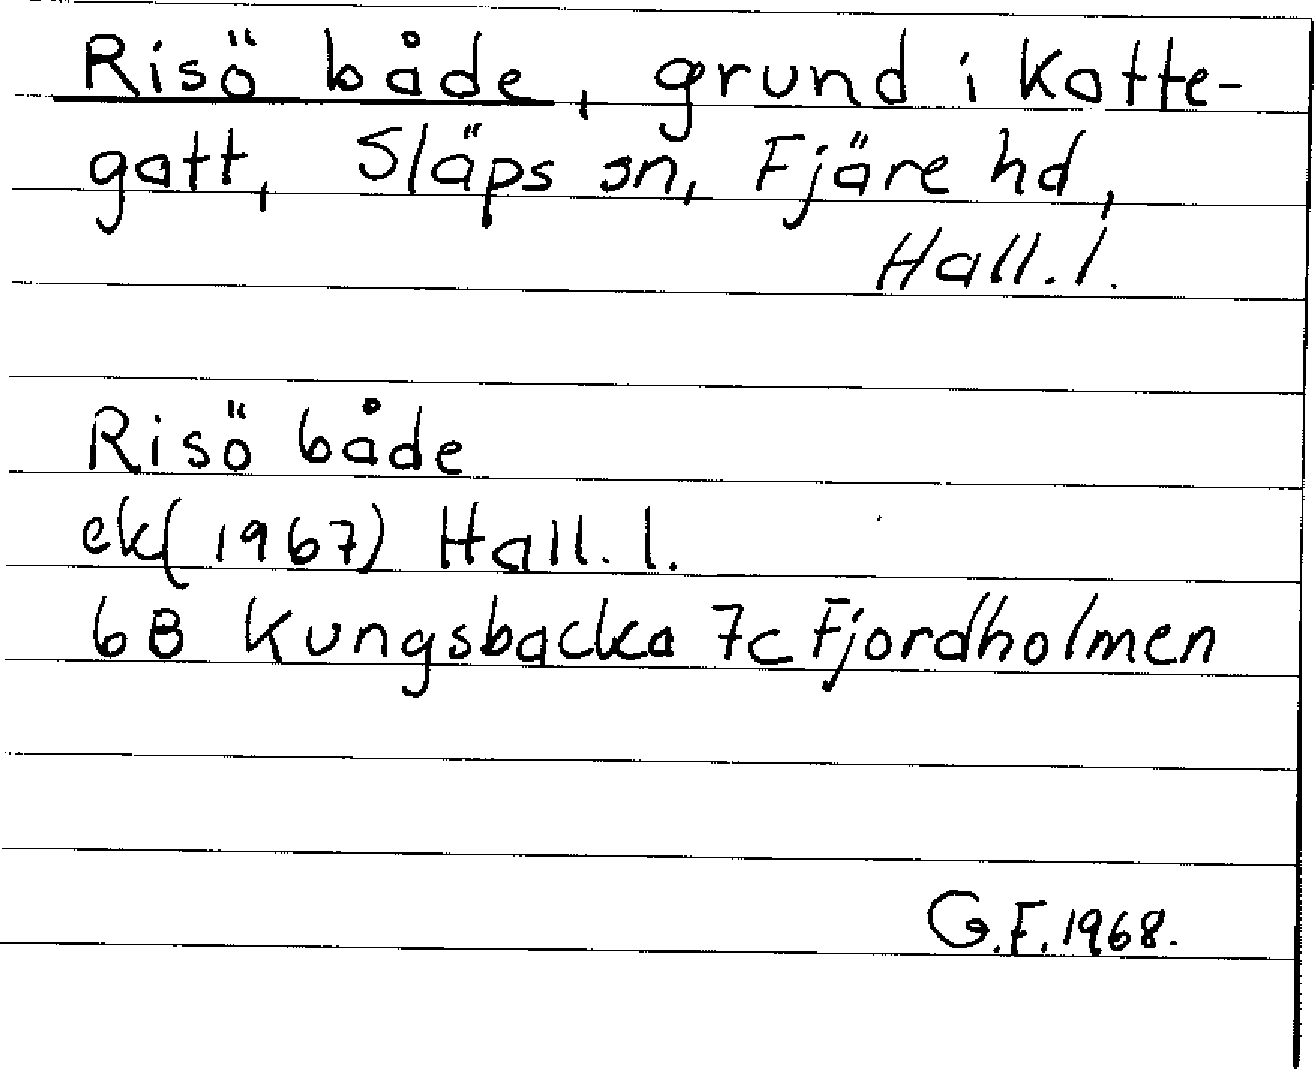 Risö både, grund i Katte-
gatt, Släps sn, Fjäre hd,
Hall. l.
Risö både
ek (1967) Hall. l.
6B Kungsbacka 7c Fjordholmen
G.F. 1968.